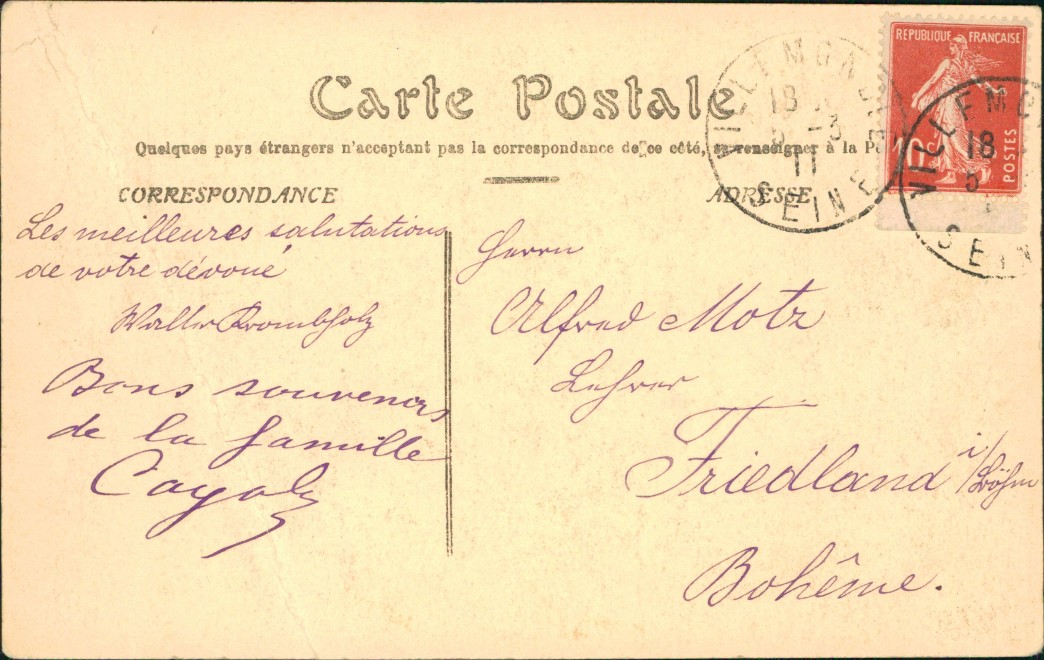 Carte Postale
Quelques pays étrangers n'acceptant pas la correspondance de ce côté, se renseigner à la
CORRESPONDANCE
ADRESSE
Les meilleures salutations
de votre dévoué
Walter Krombholz
Bons souvenirs
de la famille
Herrn
Alfred Motz
Lehrer
Friedland i/Böhm
Bohême.
RÉPUBLIQUE FRANÇAISE
POSTES
18
5 -3
11
SEINE
18
5